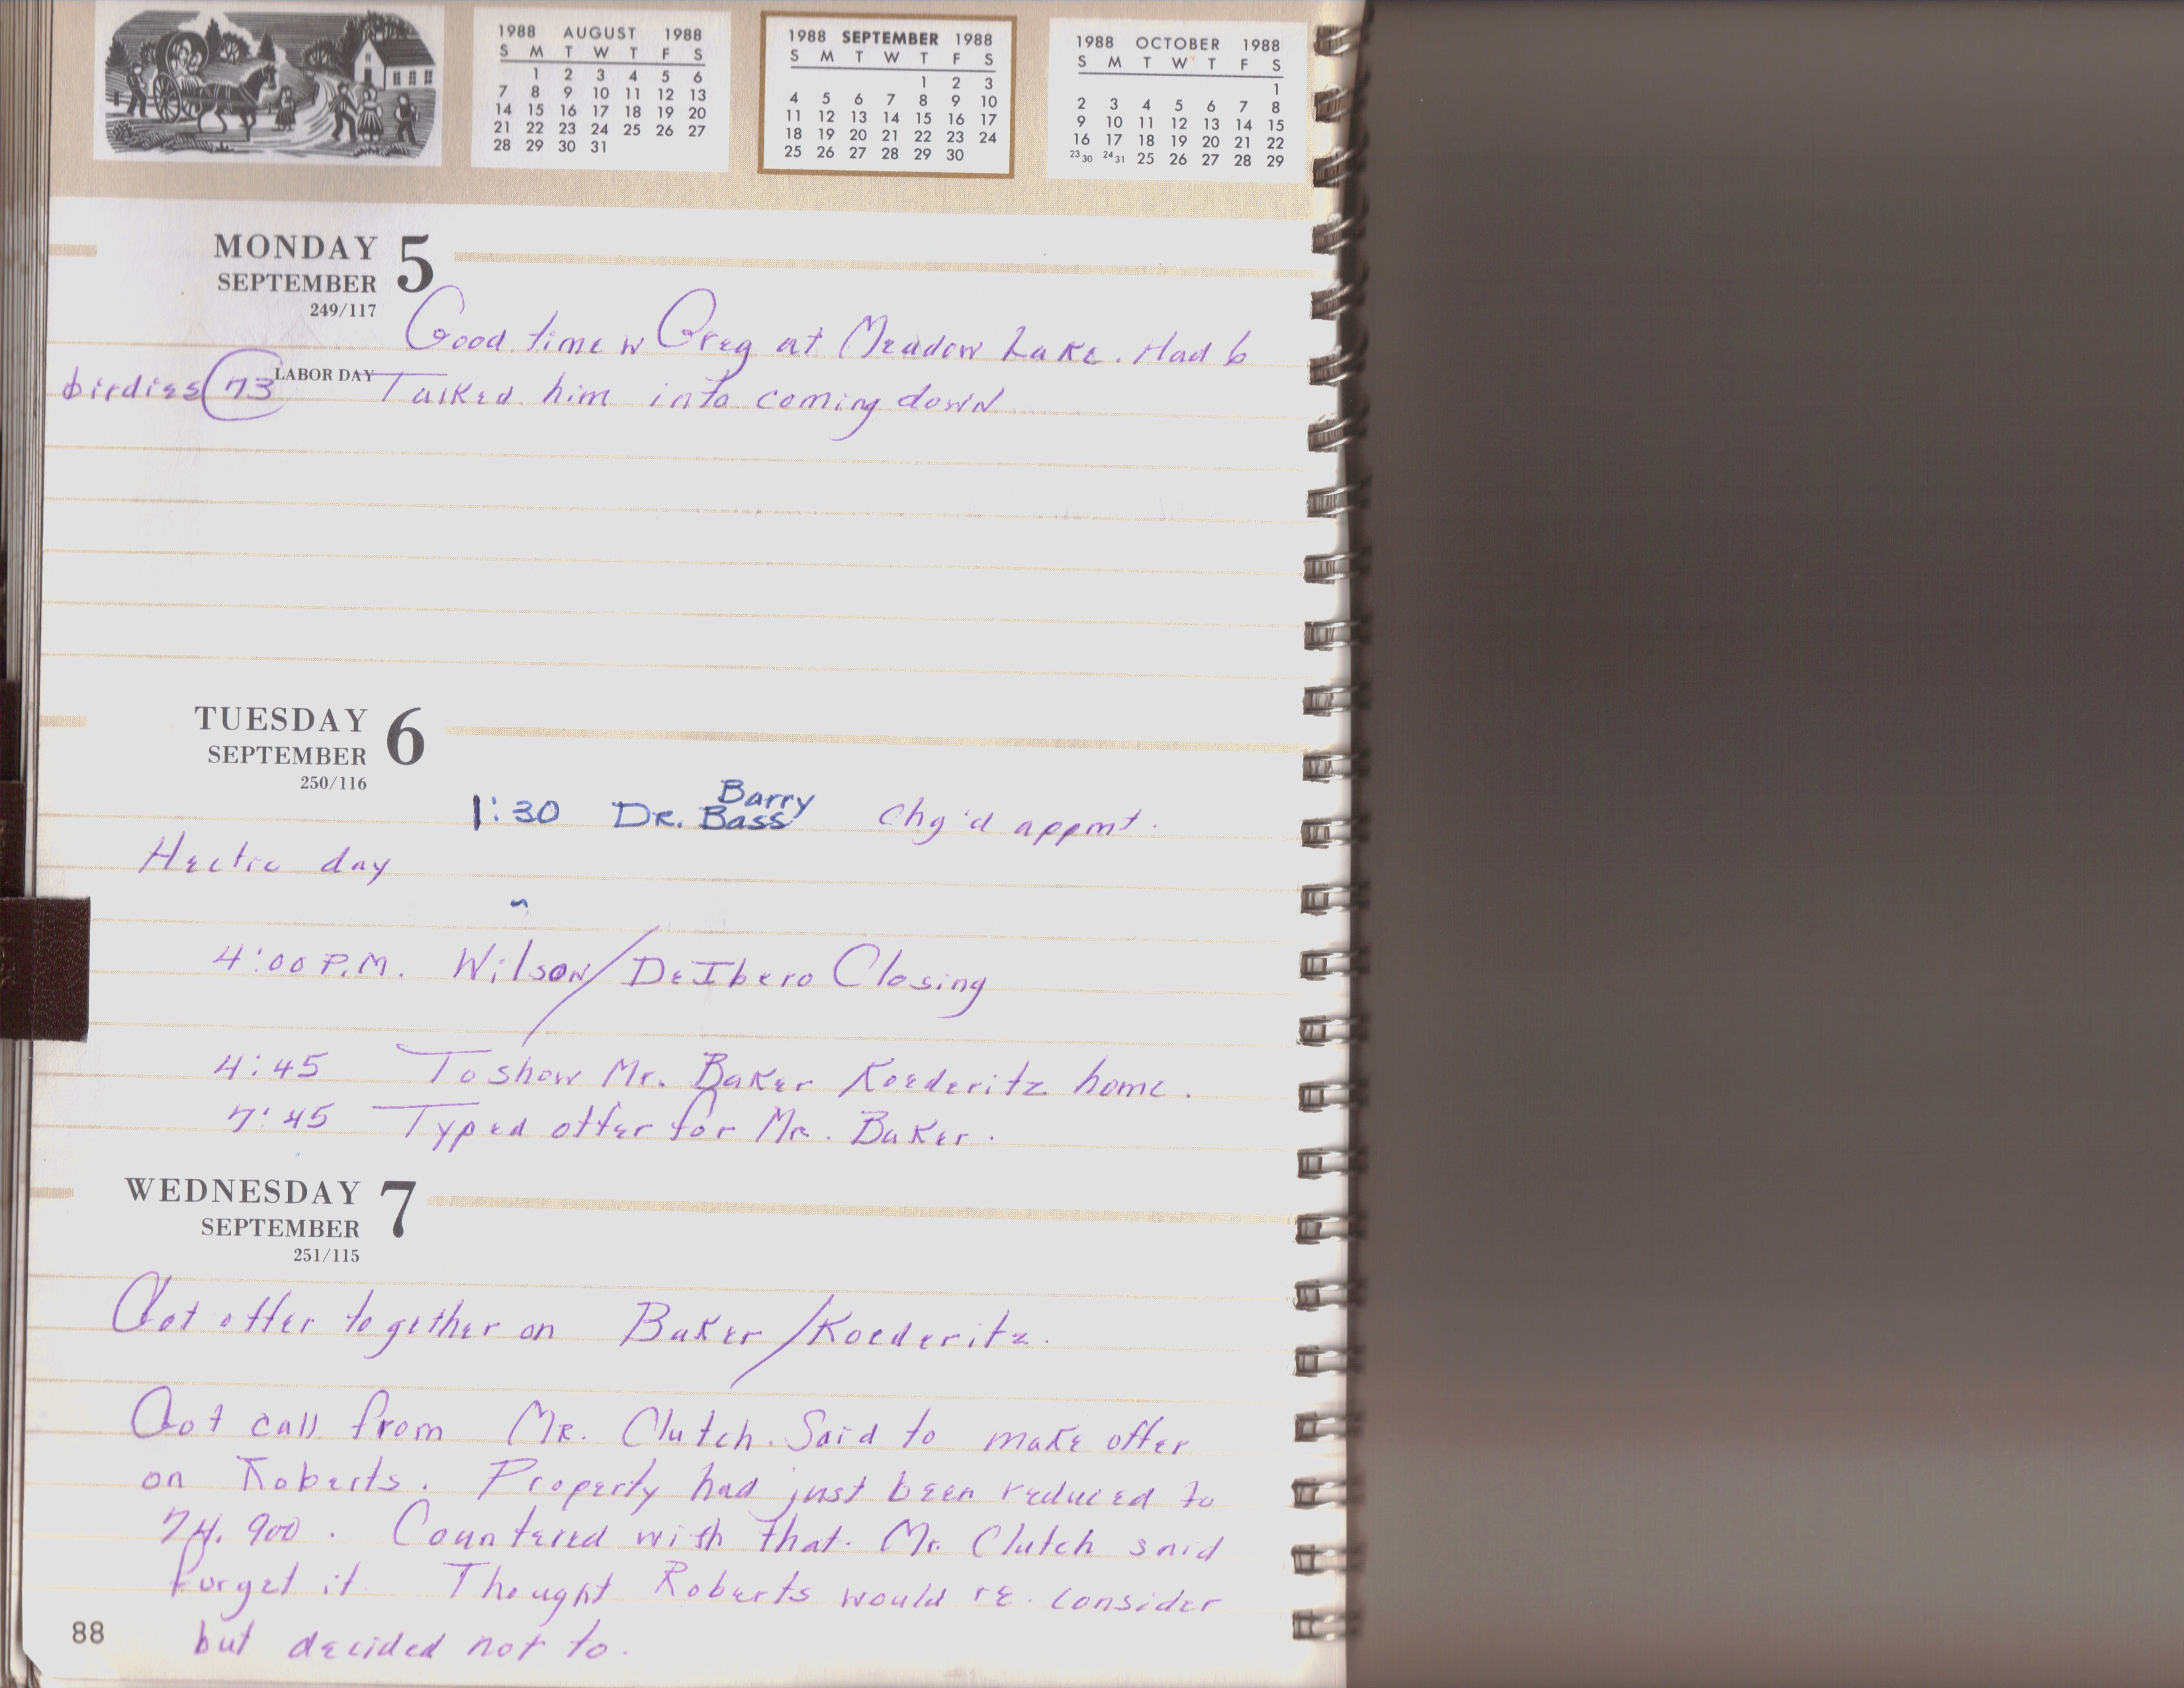 1988 AUGUST 1988
S M T W T F S
1 2 3 4 5 6
7 8 9 10 11 12 13
14 15 16 17 18 19 20
21 22 23 24 25 26 27
28 29 30 31
1988 SEPTEMBER 1988
S M T W T F S
1 2 3
4 5 6 7 8 9 10
11 12 13 14 15 16 17
18 19 20 21 22 23 24
25 26 27 28 29 30
1988 OCTOBER 1988
S M T W T F S
1
2 3 4 5 6 7 8
9 10 11 12 13 14 15
16 17 18 19 20 21 22
23 30 24 31 25 26 27 28 29
MONDAY 5
SEPTEMBER
249/117
Good time w Greg at Meadow Lake. Had 6
LABOR DAY
birdies 73 Talked him into coming down
TUESDAY 6
SEPTEMBER
250/116
Barry
1:30 DR. Bass chg'd appmt.
Hectic day
4:00 P.M. Wilson/DeIbero Closing
4:45 To show Mr. Baker Koederitz home.
7:45 Typed offer for Mr. Baker.
WEDNESDAY 7
SEPTEMBER
251/115
Got offer together on Baker/Koederitz.
Got call from MR. Clutch. Said to make offer
on Roberts. Property had just been reduced to
74.900. Countered with that. Mr. Clutch said
forget it. Thought Roberts would re. consider
but decided not to.
88